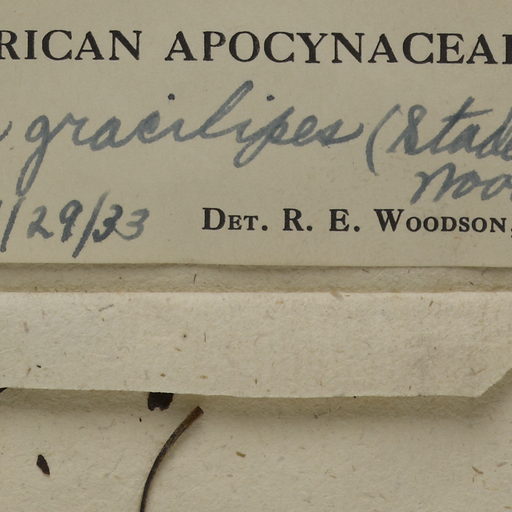 RICAN APOCYNACEAE
gracilipes (Stade
Woo
/29/33 DET. R. E. WOODSON,